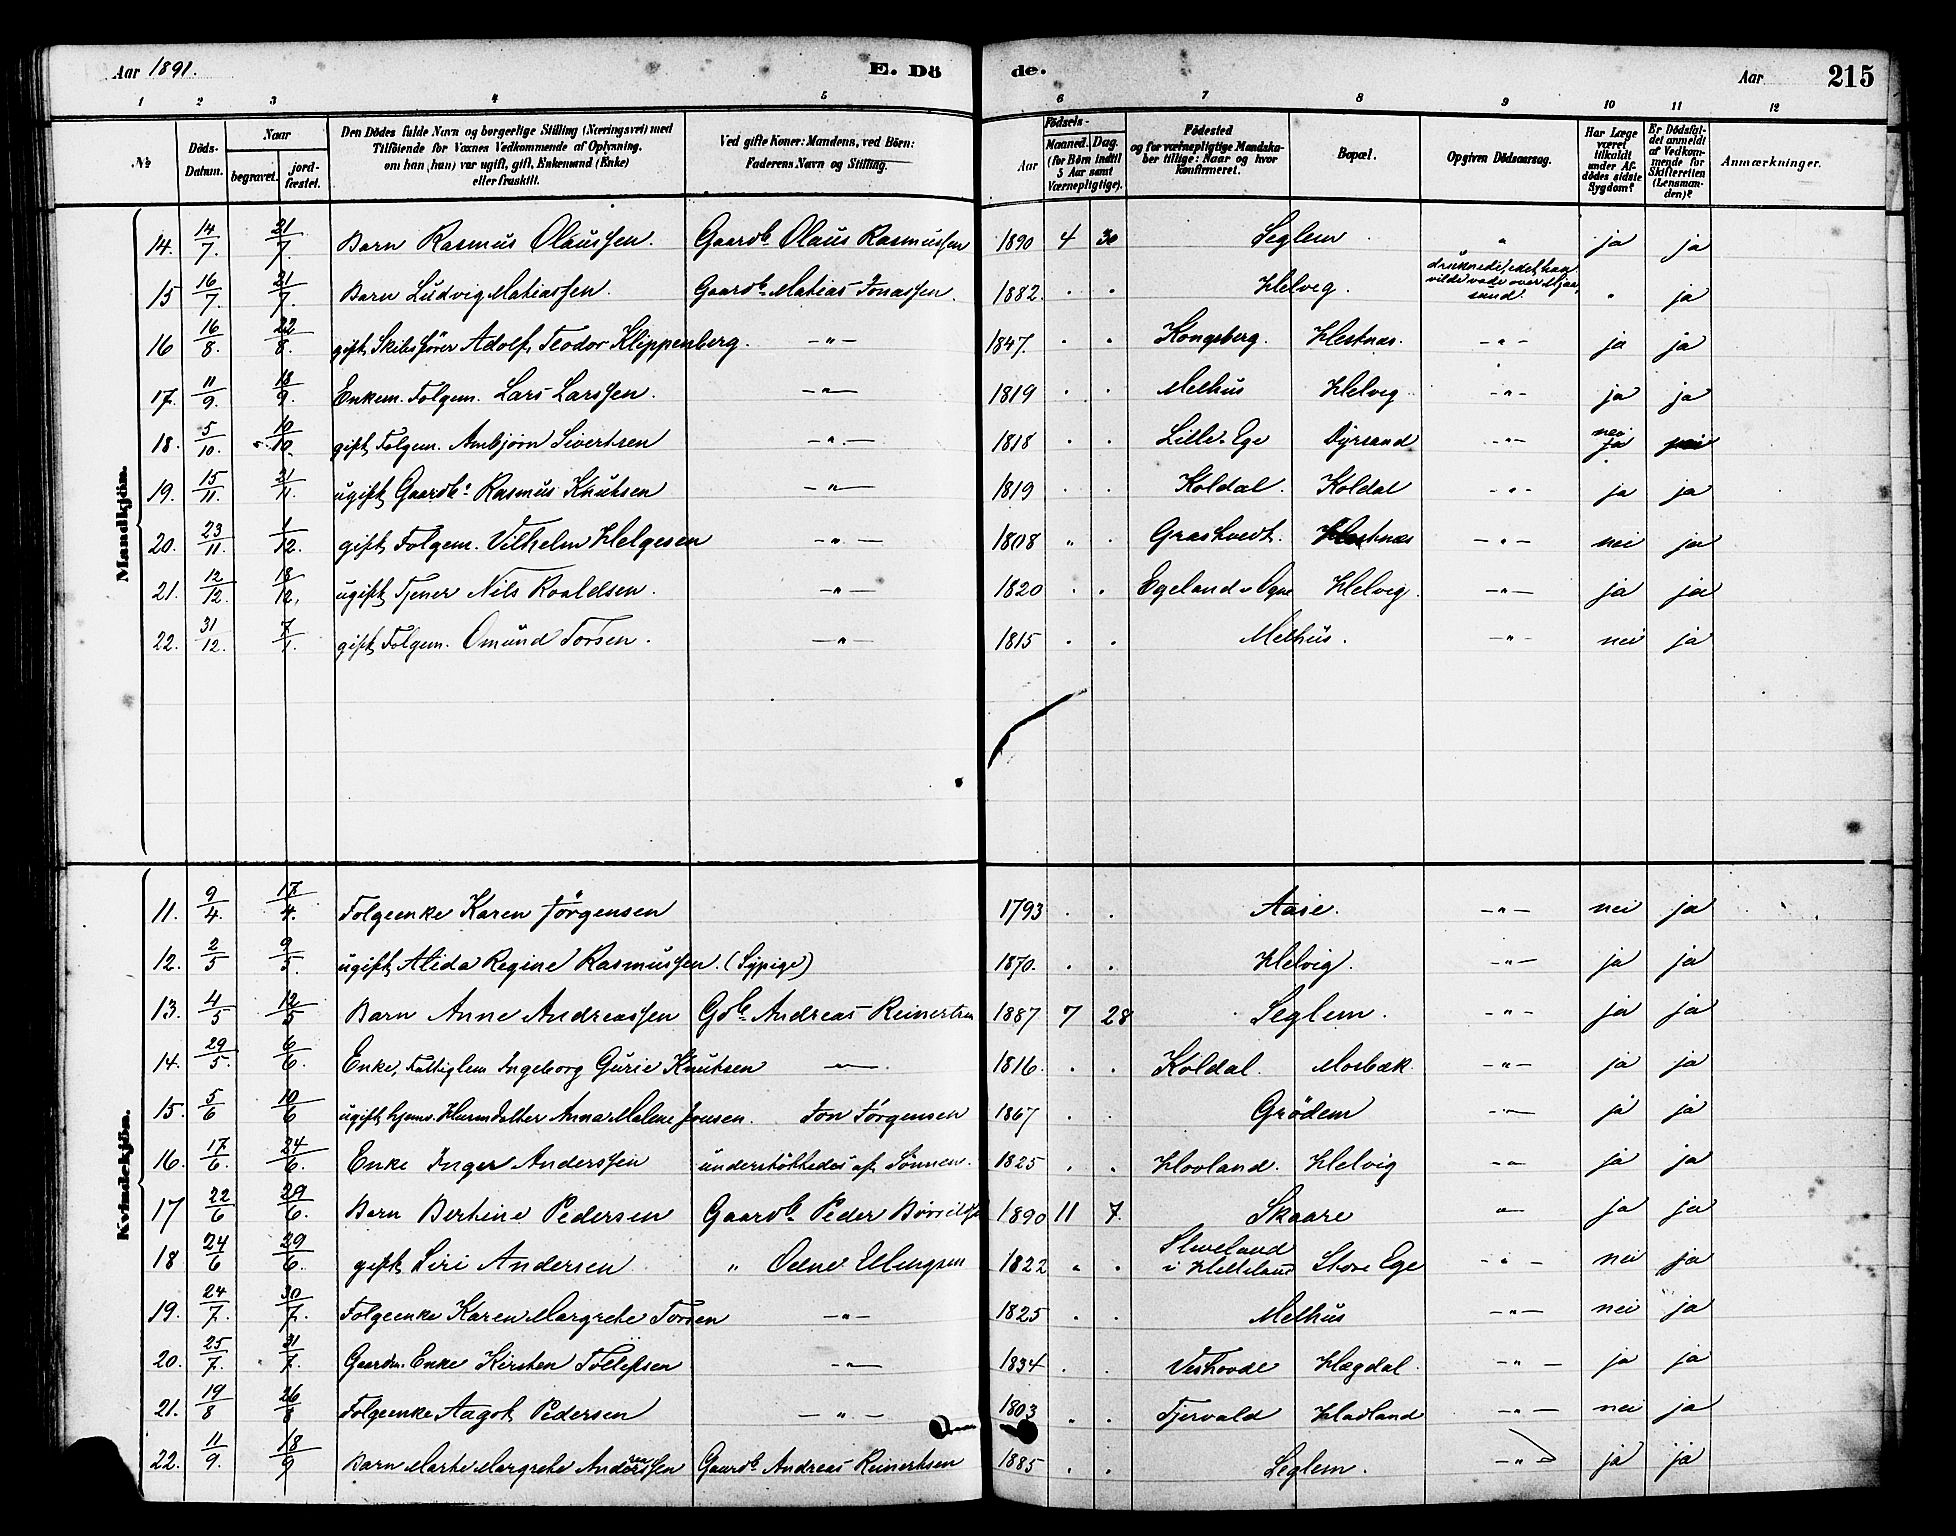 Aar 1891. E. Dö de. Aar 215
1 2 3 4 5 6 7 8 9 10 11 12
№ Döds-Datum. Naar begravet. jord-fæstet. Den Dödes fulde Navn og borgerlige Stilling (Næringsvei) med Tilföiende for Voxnes Vedkommende af Oplysning, om han (hun) var ugift, gift, Enkemand (Enke) eller fraskilt. Ved gifte Koner: Mandens, ved Börn: Faderens Navn og Stilling. Födsels- Aar Maaned. Dag. (for Börn indtil 5 Aar samt Værnepligtige). Födested og for værnepligtige Mandskaber tillige: Naar og hvor konfirmeret. Bopæl. Opgiven Dödsaarsag. Har Læge været tilkaldt under Afdödes sidste Sygdom? Er Dödsfaldet anmeldt af Vedkommende for Skifteretten (Lensmanden)? Anmærkninger.
Mandkjön.
14. 14/7. 21/7. Barn Rasmus Olaussen. Gaardb. Olaus Rasmussen 1890 4 30 Seglem. " ja ja
15 16/7. 21/7. Barn Ludvig Matiassen. Gaardb. Matias Jonassen. 1882. " " Helvig. druknede, idet han vilde vade over sund. " ja
16 16/8. 22/8. gift Skibsförer Adolf Teodor Klippenberg. — " — 1847. " " Kongsberg. Hestnæs. — " — ja ja
17. 11/9. 18/9. Enkem. Folgem. Lars Larssen. — " — 1819 " " Melhus Helvig — " — ja ja
18. 5/10. 10/10. gift Folgem. Ambjörn Sivertsen — " — 1818 " " Lille-Ege Dyrsand — " — nei ja
19. 15/11. 21/11. ugift Gaardb. Rasmus Knutsen — " — 1819 " " Koldal. Koldal — " — ja ja
20. 23/11. 1/12. gift Folgem. Vilhelm Helgesen — " — 1808 " " Grashvedt. Hestnæs — " — nei ja
21. 12/12. 18/12. ugift Tjener Nils Roaldsen. — " — 1820 " " Egeland Ogne Helvig. — " — ja ja
22. 31/12. 7/1. gift Folgem. Omund Torsen. — " — 1815 " " Melhus. — " — nei ja
Kvindekjön.
11. 9/4. 17/4. Folgeenke Karen Jörgensen 1793 " " Aase. — " — nei ja
12. 2/5 9/5. ugift Alida Regine Rasmussen. (Sypige) 1870. " " Helvig. — " — ja ja
13. 4/5 12/5 Barn Anne Andreassen Gdb. Andreas Reinertsen 1887 7 28 Seglem. — " — ja ja
14. 29/5. 6/6. Enke, Fattiglem Ingeborg Gurie Knutsen — " — 1816. " " Koldal. Mosbæk. — " — ja ja
15. 5/6 10/6 ugift hjemv. Huusdatter Anna Malene Jonsen. Jon Jörgensen 1867 " " Grödem — " — ja ja
16. 17/6. 24/6. Enke Inger Anderssen understöttedes af Sönnen. 1825 " " Hovland. Helvig — " — ja ja
17 22/6 29/6. Barn Bertine Pedersen Gaardb. Peder 1890 11 7. Skaare — " — ja ja
18. 24/6 29/6. gift Siri Andersen " Oene Ellingsen 1822 " " i Helleland Store Ege — " — nei ja
19. 24/7. 30/7. Folgeenke Karen Margrete Torsen — " — 1825 " " Melhus — " — nei ja
20. 25/7. 31/7. Gaardm. Enke Kirsten Tollefsen — " — 1834 " " Veshovde Hægdal. — " — ja ja
21. 19/8 26/8 Folgeenke Aagot Pedersen — " — 1803 " " Tjervald Hadland — " — nei ja
22. 11/9. 18/9 Barn Marte Margrete Andreassen Gaardb. Andreas Reinertsen 1885 " " Seglem. — " — ja ja